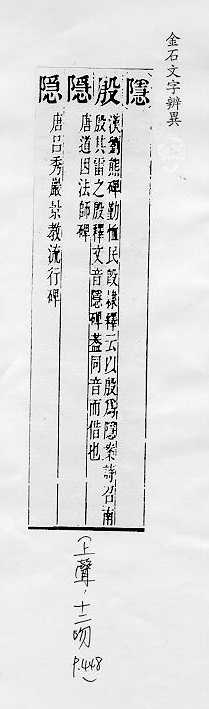 金石文字辨異
隱
殷 漢劉熊碑勤恤民殷隸釋云以殷爲隱案詩召南
殷其雷之殷釋文音隱碑蓋同音而借也
隠 唐道因法師碑
隐 唐呂秀巖景教流行碑
(上聲,十二吻
P.448)